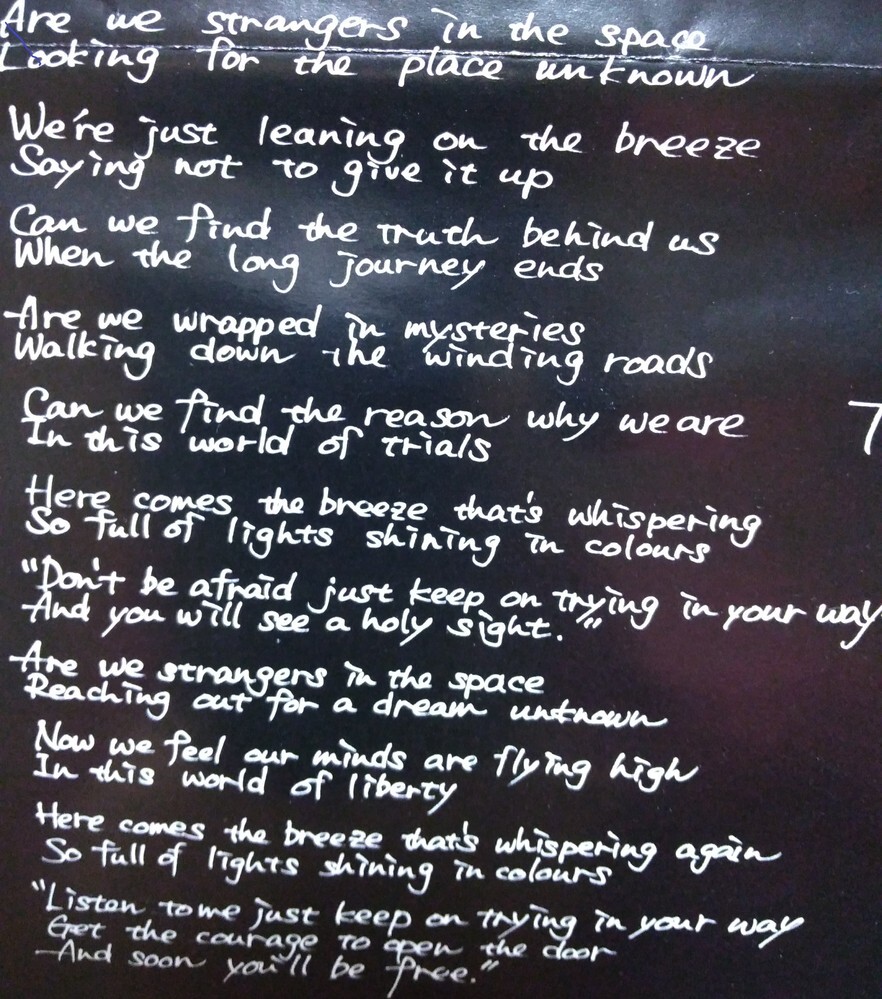 Are we strangers in the space
Looking for the place unknown
We're just leaning on the breeze
Saying not to give it up
Can we find the truth behind us
When the long journey ends
Are we wrapped in mysteries
Walking down the winding roads
Can we find the reason why we are
In this world of trials
Here comes the breeze that's whispering
So full of lights shining in colours
"Don't be afraid just keep on trying in your way
And you will see a holy sight."
Are we strangers in the space
Reaching out for a dream unknown
Now we feel our minds are flying high
In this world of liberty
Here comes the breeze that's whispering again
So full of lights shining in colours
"Listen to me just keep on trying in your way
Get the courage to open the door
And soon you'll be free."